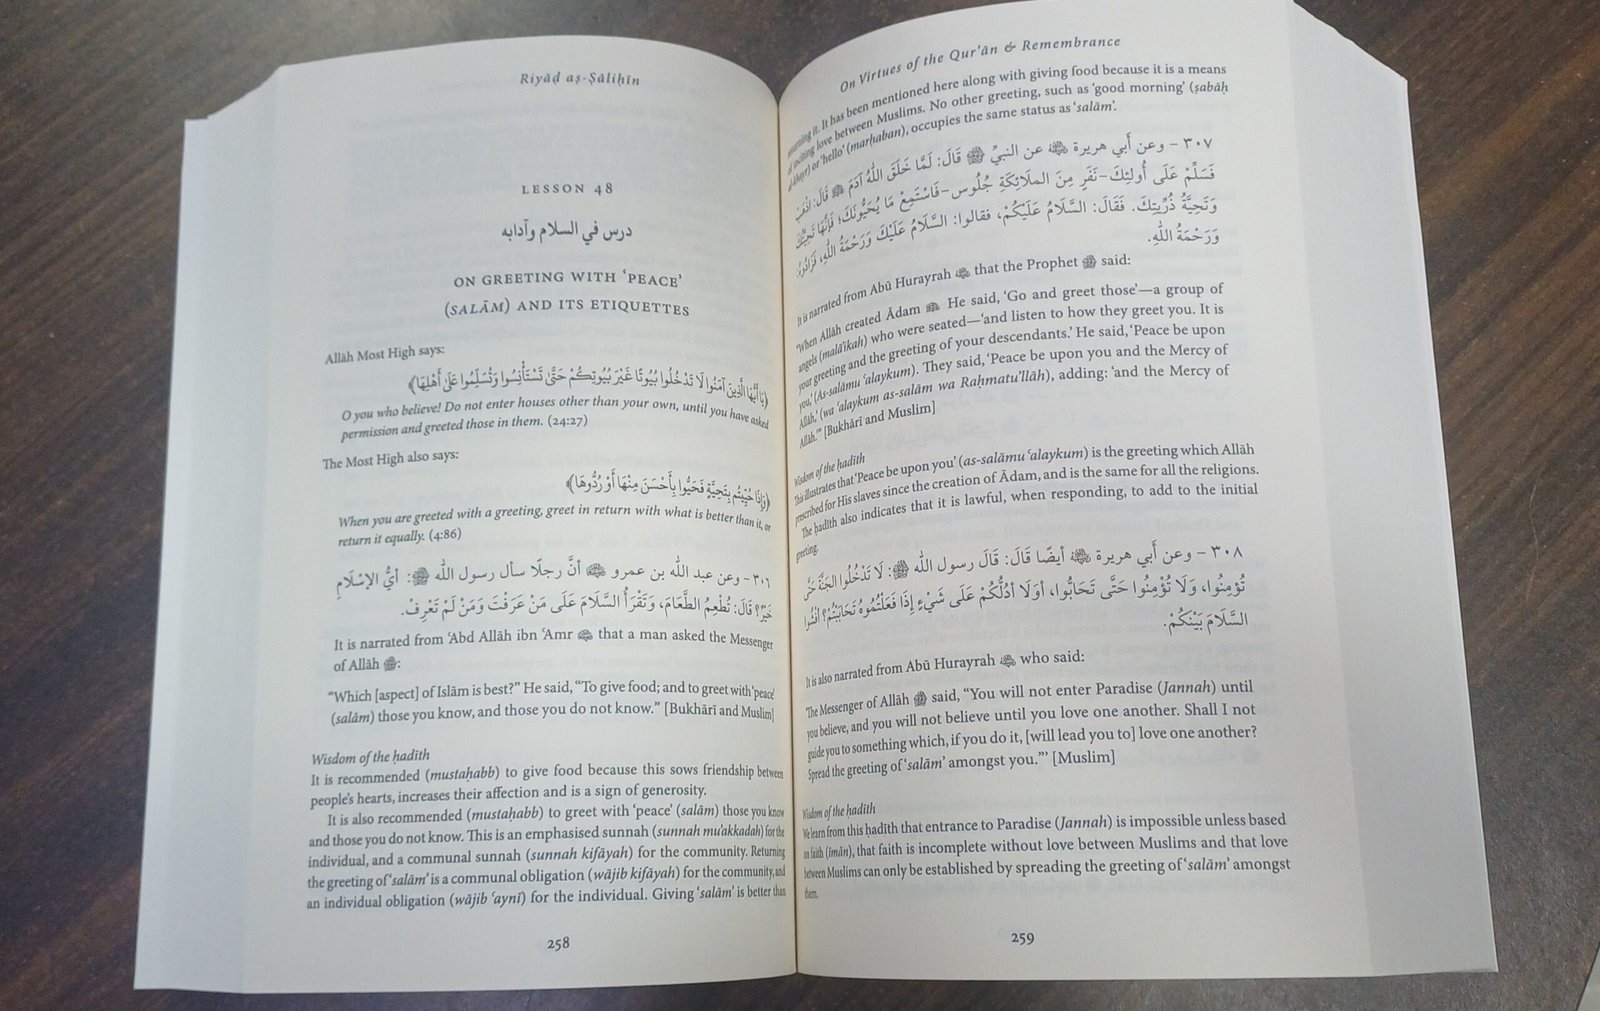 Riyāḍ aṣ-Ṣāliḥīn
LESSON 48
درس في السلام وآدابه
ON GREETING WITH ‘PEACE’
(SALĀM) AND ITS ETIQUETTES
Allāh Most High says:
﴿يَا أَيُّهَا الَّذِينَ آمَنُوا لَا تَدْخُلُوا بُيُوتًا غَيْرَ بُيُوتِكُمْ حَتَّىٰ تَسْتَأْنِسُوا وَتُسَلِّمُوا عَلَىٰ أَهْلِهَا﴾
O you who believe! Do not enter houses other than your own, until you have asked
permission and greeted those in them. (24:27)
The Most High also says:
﴿وَإِذَا حُيِّيتُم بِتَحِيَّةٍ فَحَيُّوا بِأَحْسَنَ مِنْهَا أَوْ رُدُّوهَا﴾
When you are greeted with a greeting, greet in return with what is better than it, or
return it equally. (4:86)
٣٠٦ – وعن عبد الله بن عمرو ﷺ أنَّ رجلًا سأل رسول الله ﷺ: أيُّ الإسْلَامِ
خَيْرٌ؟ قَالَ: تُطْعِمُ الطَّعَامَ، وَتَقْرَأُ السَّلَامَ عَلَى مَنْ عَرَفْتَ وَمَنْ لَمْ تَعْرِفْ.
It is narrated from ‘Abd Allāh ibn ‘Amr that a man asked the Messenger
of Allāh ﷺ:
“Which [aspect] of Islām is best?” He said, “To give food; and to greet with ‘peace’
(salām) those you know, and those you do not know.” [Bukhārī and Muslim]
Wisdom of the ḥadīth
It is recommended (mustaḥabb) to give food because this sows friendship between
people’s hearts, increases their affection and is a sign of generosity.
It is also recommended (mustaḥabb) to greet with ‘peace’ (salām) those you know
and those you do not know. This is an emphasised sunnah (sunnah mu’akkadah) for the
individual, and a communal sunnah (sunnah kifāyah) for the community. Returning
the greeting of ‘salām’ is a communal obligation (wājib kifāyah) for the community, and
an individual obligation (wājib ‘aynī) for the individual. Giving ‘salām’ is better than
258
On Virtues of the Qur’ān & Remembrance
returning it. It has been mentioned here along with giving food because it is a means
of inciting love between Muslims. No other greeting, such as ‘good morning’ (ṣabāḥ
al-khayr) or ‘hello’ (marḥaban), occupies the same status as ‘salām’.
٣٠٧ – وعن أبي هريرة عن النبيِّ ﷺ قَالَ: لَمَّا خَلَقَ اللَّهُ آدَمَ قَالَ: اذْهَبْ
فَسَلِّمْ عَلَى أُولئِكَ–نَفَرٍ مِنَ الملَائِكَةِ جُلُوس–فَاسْتَمِعْ مَا يُحَيُّونَكَ؛ فَإِنَّهَا تَحِيَّتُكَ
وَتَحِيَّةُ ذُرِّيَتِكَ. فَقَالَ: السَّلَامُ عَلَيْكُمْ، فقالوا: السَّلَامُ عَلَيْكَ وَرَحْمَةُ اللَّهِ، فَزَادُوهُ:
وَرَحْمَةُ اللَّهِ.
It is narrated from Abū Hurayrah that the Prophet ﷺ said:
“When Allāh created Ādam He said, ‘Go and greet those’—a group of
angels (malā’ikah) who were seated—‘and listen to how they greet you. It is
your greeting and the greeting of your descendants.’ He said, ‘Peace be upon
you,’ (As-salāmu ‘alaykum). They said, ‘Peace be upon you and the Mercy of
Allāh,’ (wa ‘alaykum as-salām wa Raḥmatu’llāh), adding: ‘and the Mercy of
Allāh.’” [Bukhārī and Muslim]
Wisdom of the ḥadīth
This illustrates that ‘Peace be upon you’ (as-salāmu ‘alaykum) is the greeting which Allāh
prescribed for His slaves since the creation of Ādam, and is the same for all the religions.
The ḥadīth also indicates that it is lawful, when responding, to add to the initial
greeting.
٣٠٨ – وعن أبي هريرة أيضًا قَالَ: قَالَ رسول الله ﷺ: لَا تَدْخُلُوا الجَنَّةَ حَتَّى
تُؤْمِنُوا، وَلَا تُؤْمِنُوا حَتَّى تَحَابُّوا، أوَلَا أدُلُّكُمْ عَلَى شَيْءٍ إِذَا فَعَلْتُمُوهُ تَحَابَبْتُمْ؟ أفْشُوا
السَّلَامَ بَيْنَكُمْ.
It is also narrated from Abū Hurayrah who said:
The Messenger of Allāh ﷺ said, “You will not enter Paradise (Jannah) until
you believe, and you will not believe until you love one another. Shall I not
guide you to something which, if you do it, [will lead you to] love one another?
Spread the greeting of ‘salām’ amongst you.”’ [Muslim]
Wisdom of the ḥadīth
We learn from this ḥadīth that entrance to Paradise (Jannah) is impossible unless based
on faith (īmān), that faith is incomplete without love between Muslims and that love
between Muslims can only be established by spreading the greeting of ‘salām’ amongst
them.
259